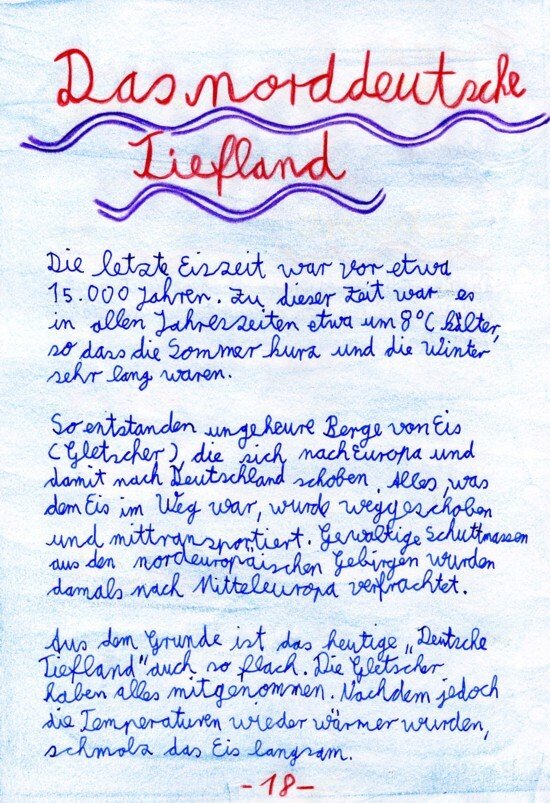 Das norddeutsche
Tiefland
Die letzte Eiszeit war vor etwa
15.000 Jahren. Zu dieser Zeit war es
in allen Jahreszeiten etwa um 8°C kälter,
so dass die Sommer kurz und die Winter
sehr lang waren.
So entstanden ungeheure Berge von Eis
(Gletscher), die sich nach Europa und
damit nach Deutschland schoben. Alles, was
dem Eis im Weg war, wurde weggeschoben
und mittransportiert. Gewaltige Schuttmassen
aus den nordeuropäischen Gebirgen wurden
damals nach Mitteleuropa verfrachtet.
Aus dem Grunde ist das heutige „Deutsche
Tiefland" auch so flach. Die Gletscher
haben alles mitgenommen. Nachdem jedoch
die Temperaturen wieder wärmer wurden,
schmolz das Eis langsam.
-18-